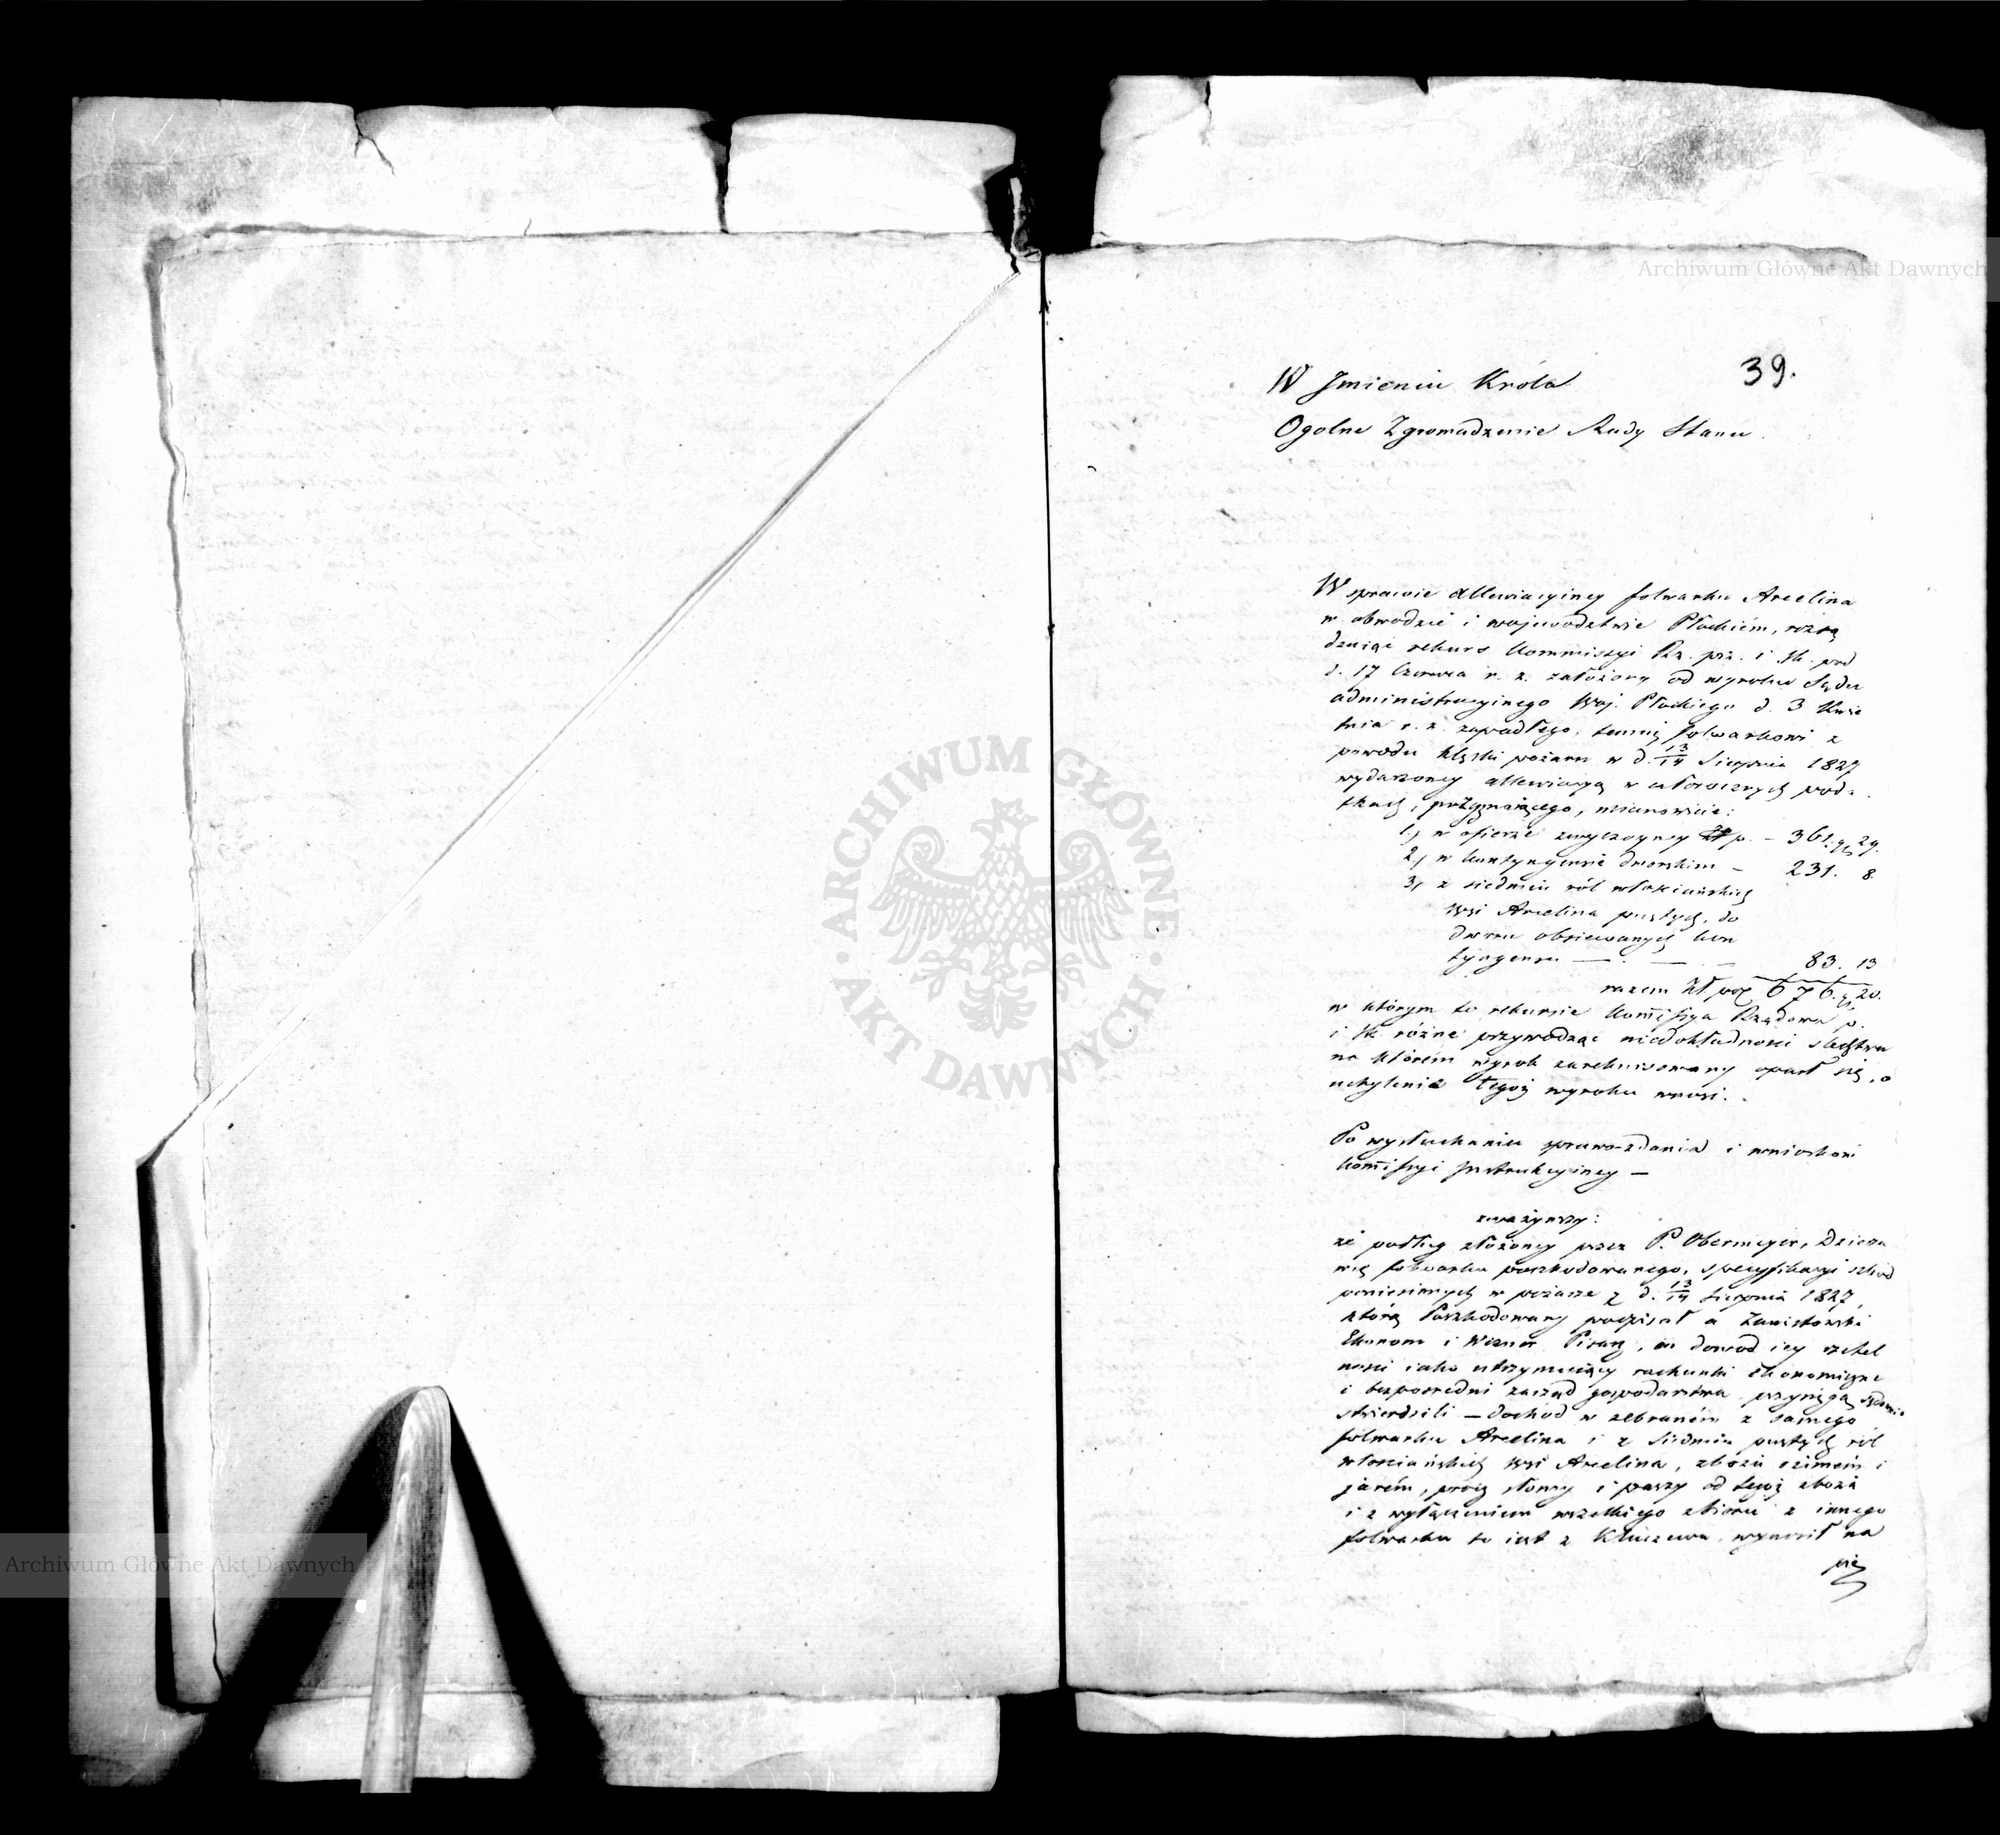 39.
W Jmieniu Króla
Ogolne Zgromadzenie Rady Stanu
W sprawie allewiacyiney folwarku Arcelina
w obwodzie i województwie Płockiém, rozzą
dzaiąc rekurs Kommissyi Rz. prz. i Sk. pod
d. 17 Czerwca r. z. założony od wyroku Sądu
administracyinego Woj. Płockiego d. 3 Kwie
tnia r. z. zapadłego, temuż folwarkowi z
powodu klęski pożaru w d. 13/14 Sierpnia 1827
wydarzoney allewiacyą w całorocznych poda
tkach, przyznaiącego, mianowicie:
1.) w ofierze zwyczayney Zł p. – 361. gr 29.
2.) w kontyngensie dworskim – 231. 8.
3.) z siedmiu ról włościańskich
wsi Arcelina pustych, do
dworu obsiewanych kon
tyngensu — — — 83. 13
razem Zł pol. 676. gr 20.
w którym to rekursie Kommissya Rządowa p.
i Sk różne przywodząc niedokładności śledztwa
na którém wyrok zarekursowany oparł się, o
uchylenie tegoż wyroku wnosi.
Po wysłuchaniu sprawozdania i wniosków
Kommissyi Jnstrukcyiney —
zważywszy:
że podług złożoney przez P. Obermeyer, Dzierża
wcę folwarku poszkodowanego, specyfikacyi szkód
poniesionych w pożarze z d. 13/14 Sierpnia 1827,
którą Poszkodowany podpisał a Zawistowski
Ekonom i Pisarz, na dowód iey rzetel
ności iako utrzymuiący rachunki ekonomiczne
i bezpośredni zarząd gospodarstwa, przysięgą
stwierdzili – dochód w zebraném z samego
folwarku Arcelina i z siedmiu pustych ról
włościańskich wsi Arcelina, zbożu ozimém i
jarém, prócz słomy i paszy od tegoż zboża
i z wyłączeniem wszelkiego zbioru z innego
folwarku to iest z Kluczewa, wynosił na
pię
Archiwum Główne Akt Dawnych
Archiwum Główne Akt Dawnych
ARCHIWUM GŁÓWNE
AKT DAWNYCH